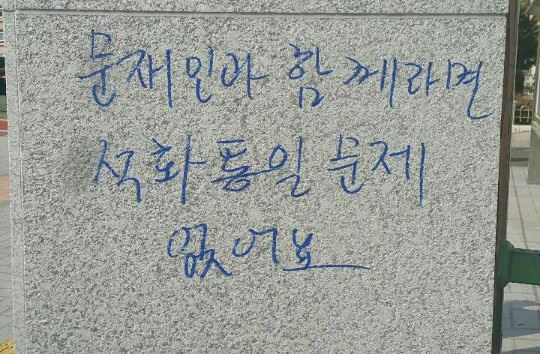 문재인과 함께라면
석화통일 문제
없어요